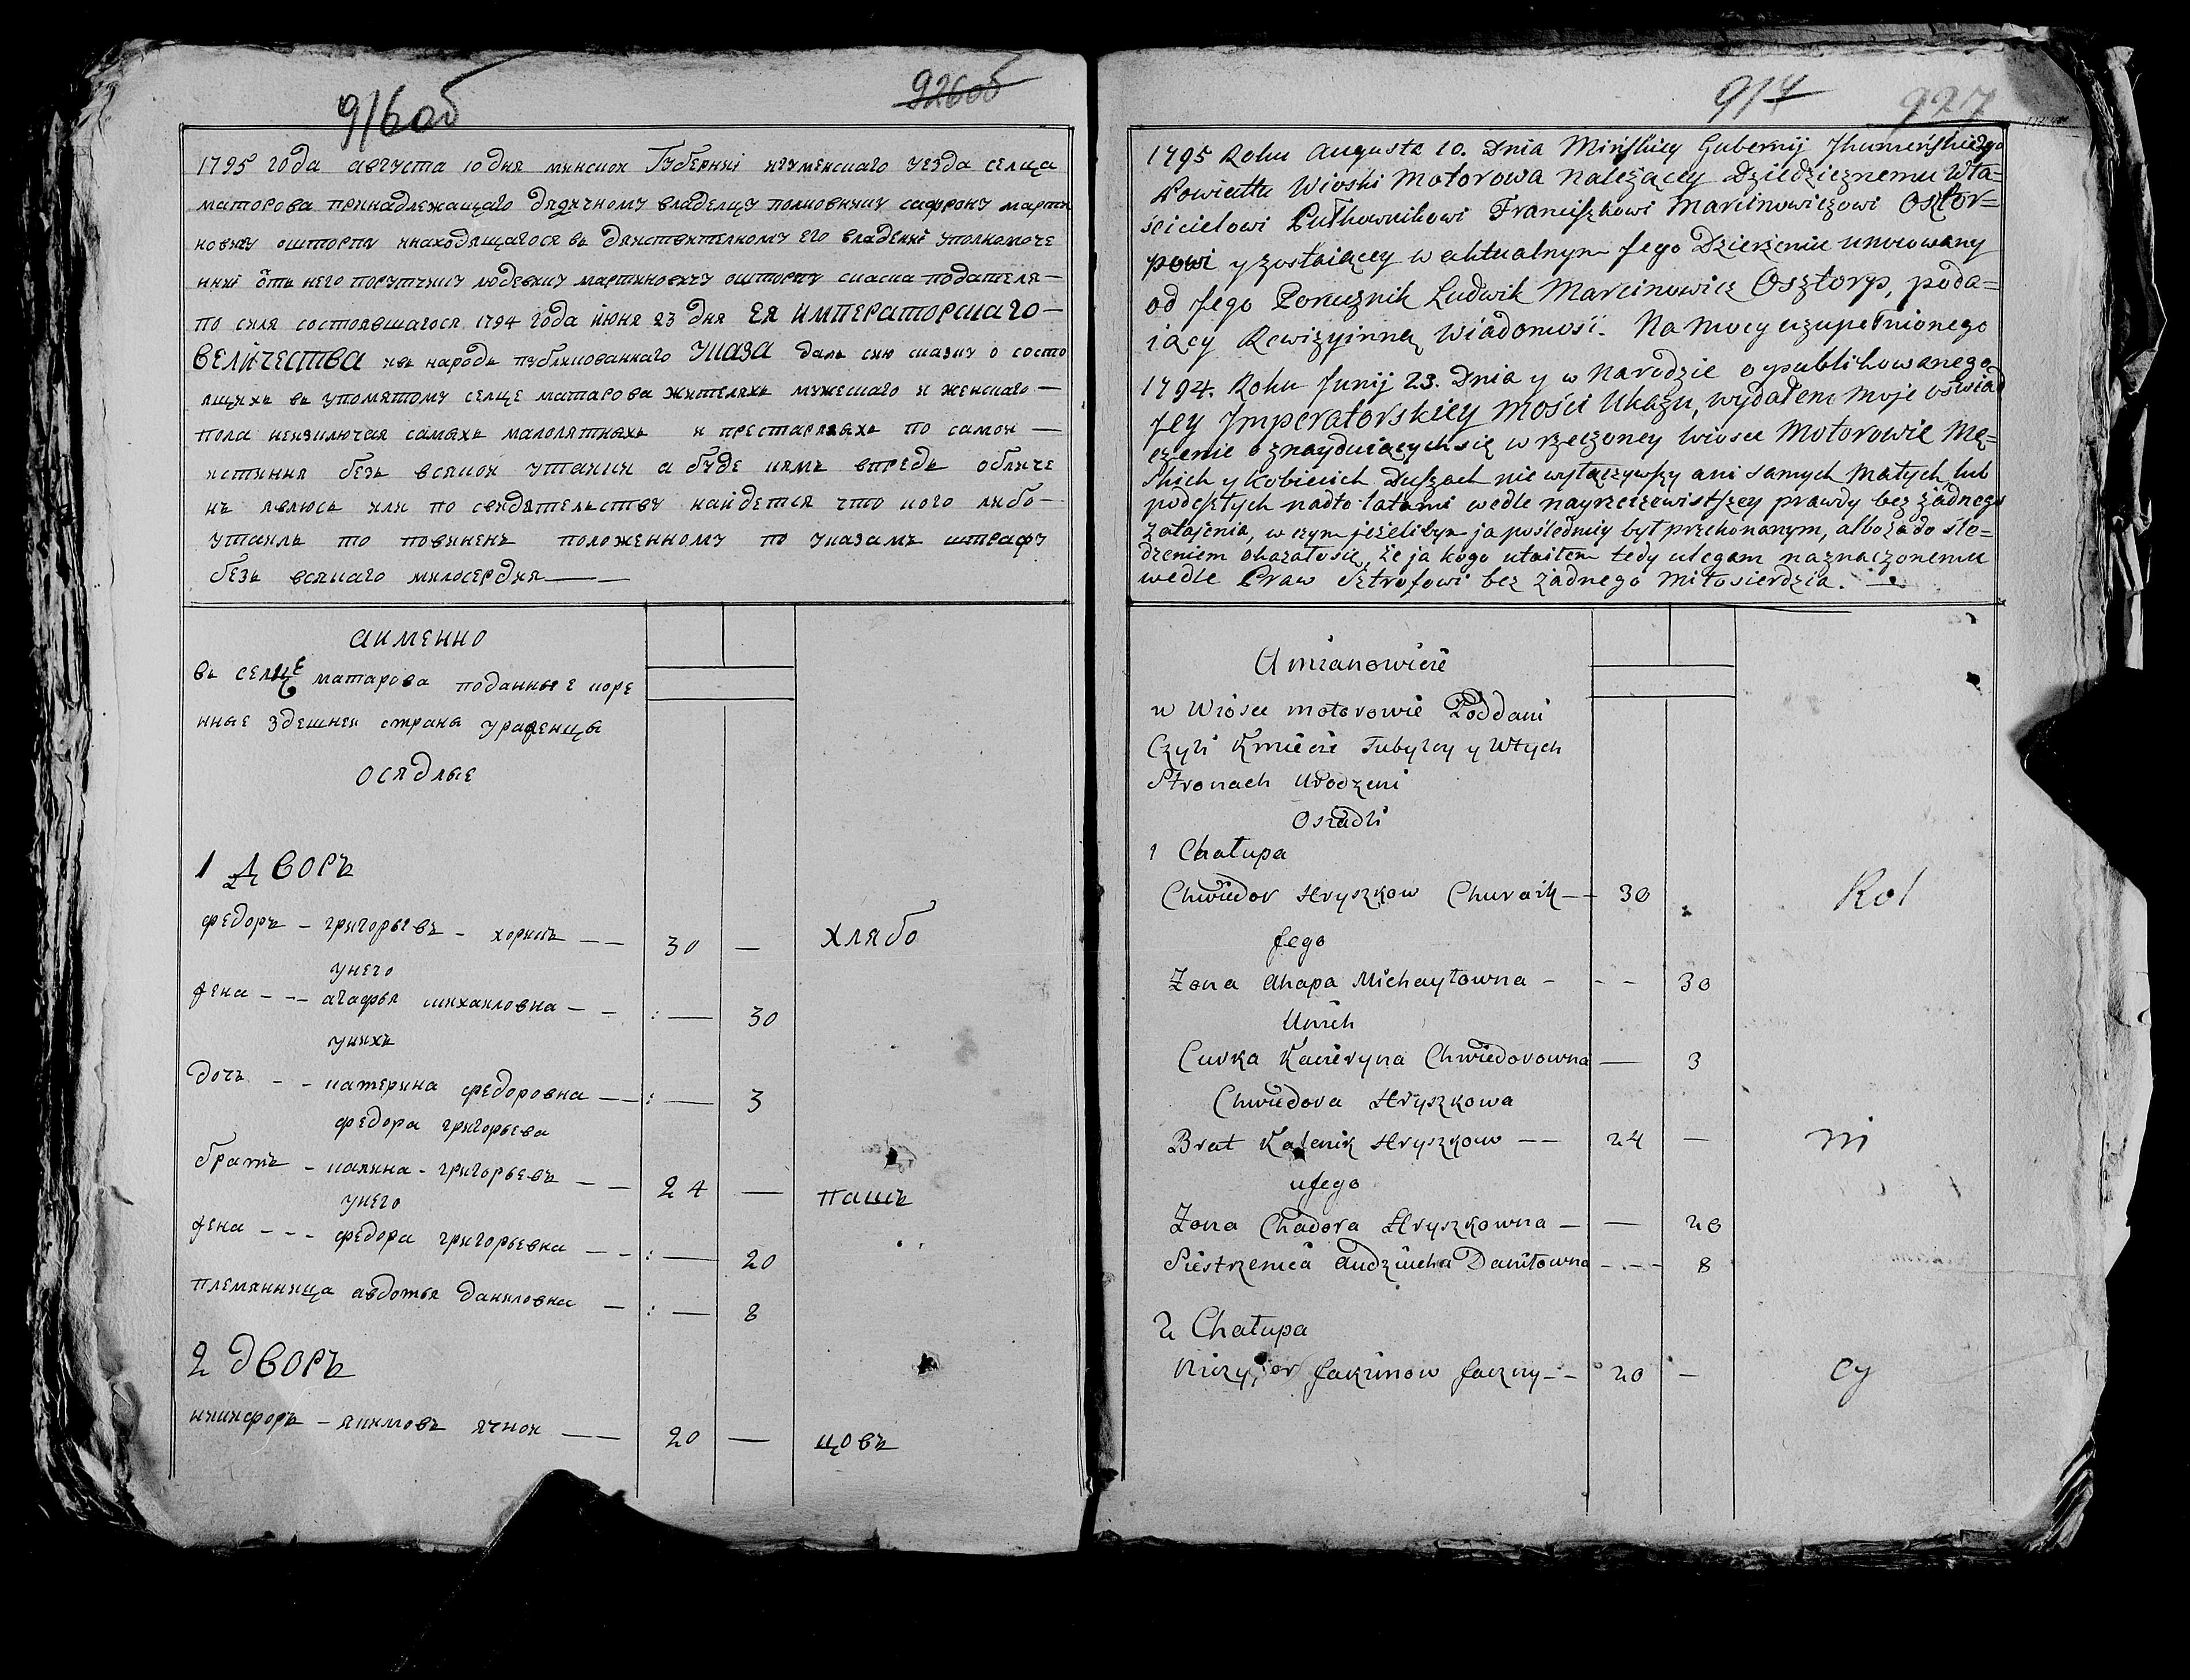 916об
926об
1795 года августа 10 дня минской Губернии игуменского уезда селца
маторова принадлежащаго дядичному владелцу полковнику сафрону марти
новичу ошторпу инаходящагося въ действителному его владении уполномоче
ннӏ отъ него порутчику людевику мартиновичу ошторпу сказка подателя —
по силя состоявшагося 1794 года июня 23 дня ЕЯ ИМПЕРАТОРСКАГО —
ВЕЛИЧЕСТВА ивъ народъ публикованнаго УКАЗА далъ сию сказку о состо
ящихъ въ упомятому селце матарова жителяхъ мужескаго и женскаго —
пола неизключая самыхъ малолятныхъ и престарлыхъ по самой —
истиння безъ всякой утайки а буде кямъ впредъ обличе
нъ явлюсь или по свядятельству найдется что кого либо —
утаилъ то повиненъ положенному по указамъ штрафу
безъ всякаго милосердия —
АИМЕННО
въ селце матарова поданные коре
нные здешнея страны ураженцы
осядлые
1 ДВОРЪ
федоръ – григорьевъ – хорикъ — — 30 — хлябо
унего
жена – – – агафья михаиловна – – : — 30
унихъ
дочъ – – катерина федоровна — — : — 3
федора григорьева
братъ – каляна – григорьевъ – – 24 — пашъ
унего
жена – – – федора григорьевна – – : — 20
племянница авдотья даниловна – : — 8
2 ДВОРЪ
никифоръ – якимовъ ячной — — 20 — цовъ
917
927
1795 Roku Augusta 10. Dnia Mińskiey Gubernij Jhumeńskiego
Powiattu Wioski Motorowa Należącey Dziedzicznemu Wła=
ścicielowi Pułkownikowi Franciszkowi Marcinowiczowi Osztor=
powi y zostaiącey w aktualnym Jego Dzierżeniu umocowany
od Jego Porucznik Ludwik Marcinowicz Osztorp, poda=
iący Rewizyinną Wiadomość. Na mocy uzupełnionego
1794. Roku Junij 23. Dnia y w Narodzie opublikowanego
Jey Jmperatorskiey Mości Ukazu, wydałem moje oświad
czenie o znayduiących się w rzeczoney Wiosce Motorowie Mę=
skich y Kobiecich Duszach nie wyłączywszy ani samych Małych, lub
podeszłych nadto latami wedle nayrzeczewistszey prawdy bez żadnego
Zatajenia, w czym jeżelibym ja poślednicy był przekonanym, albo za do śle=
dzeniem okazałosie, że ja kogo utaiłem tedy ulegam naznaczonemu
wedle Praw Sztrofowi bez żadnego miłosierdzia. —
A mianowicie
w Wiosce motorowie Poddani
Czyli Kmiecie Tubylcy y Wtych
Stronach Urodzeni
Osiadli
1 Chałupa
Chwiedor Hryszkow Churaik — 30 Rol
Jego
Żona Ahapa Michayłowna – – – 30
Unich
Curka Kacieryna Chwiedorowna — 3
Chwiedora Hryszkowa
Brat Kalenik Hryszkow — — 24 — ni
ujego
Żona Chadora Hryszkowna — — 20
Siestrzenica Audziucha Daniłowna – – – 8
2 Chałupa
Jakimow Jaczny – – 20 – cy